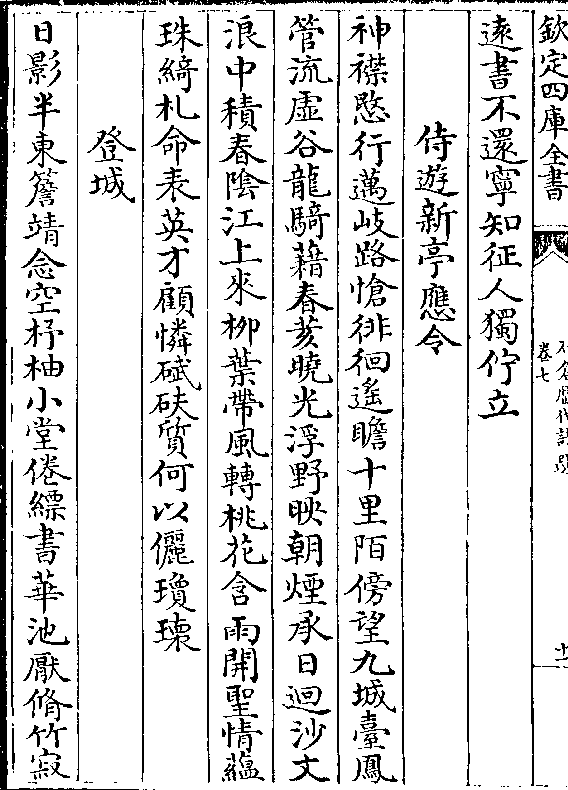 欽定四庫全書
卷七
遠書不還寧知征人獨佇立
侍遊新亭應令
神襟愍行邁岐路愴徘徊遙瞻十里陌傍望九城臺鳳
管流虛谷龍騎藉春荄曉光浮野映朝煙承日迴沙文
浪中積春陰江上來柳葉帶風轉桃花含雨開聖情蘊
珠綺札命表英才顧憐碔砆質何以儷瓊瓌
登城
日影半東簷靖念空杼柚小堂倦縹書華池厭脩竹寂